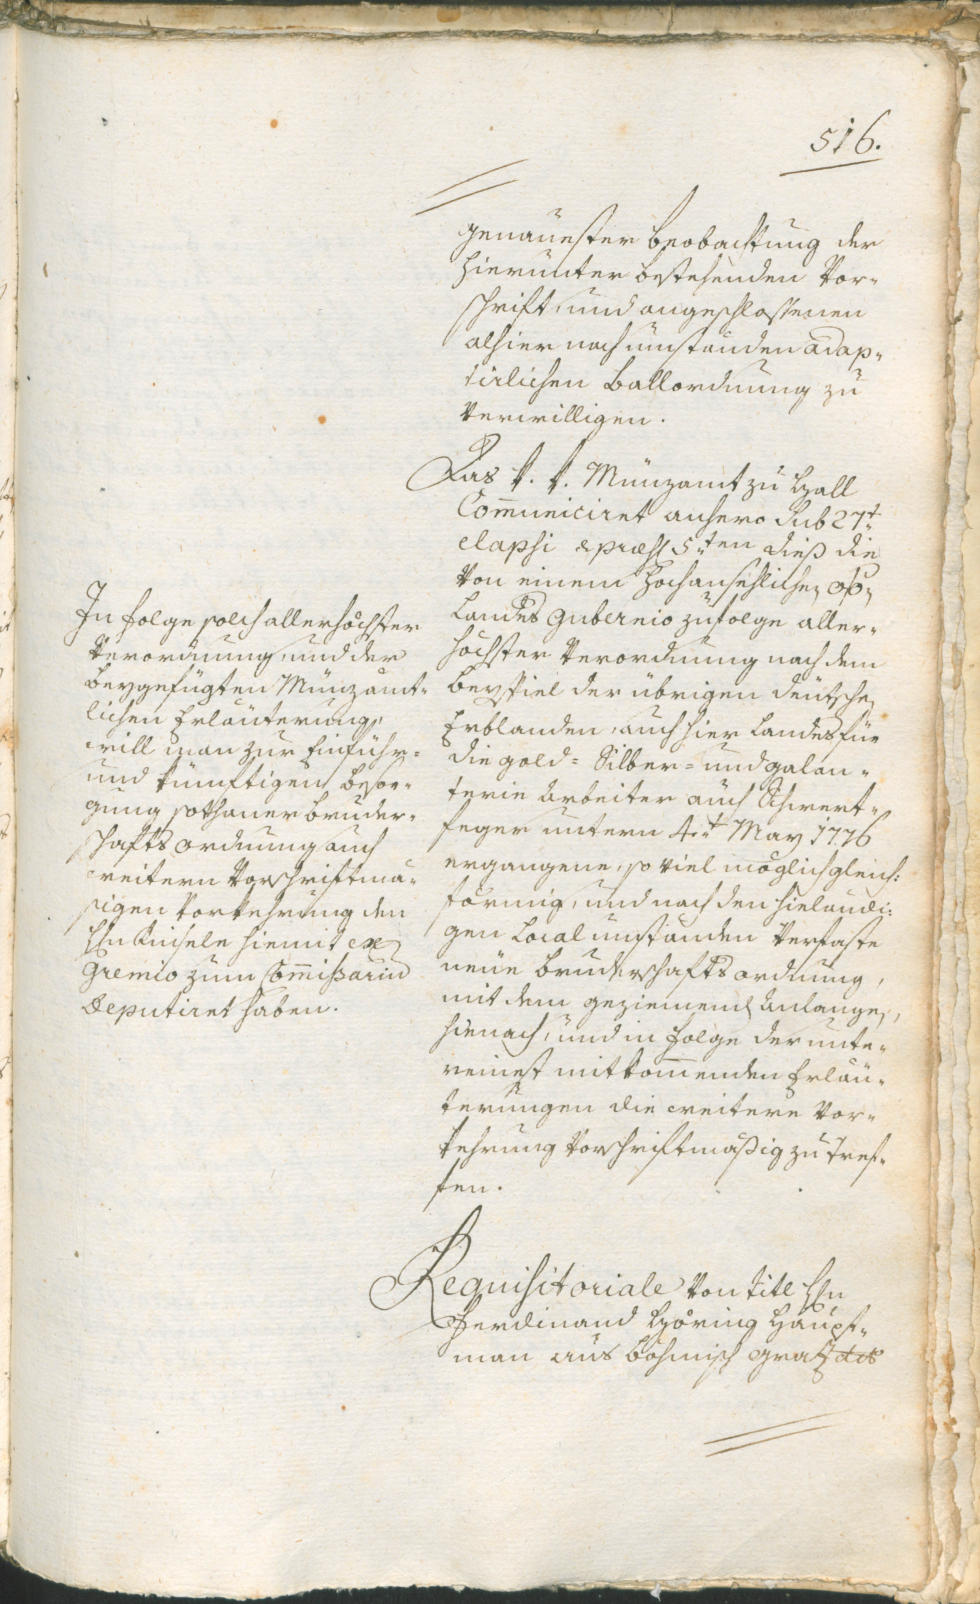 516.
genauester Beobachtung der
hierunter bestehenden Vor-
schrift, und angeschlossenen
alhier nach umständen adap-
tirlichen Ballordnung zu
verwilligen.
Das k. k. Münzamt zu Hall
Com̄uniciret anhero sub 27t
elapsi & præs 5ten dieß die
von einem Hochansehlichen o:ö:
Landes Gubernio zufolge aller-
höchster Verordnung nach dem
Beyspiel der übrigen deutschen
Erblanden, auch hier Landes für
die gold- Silber- und galan-
terie Arbeiter auch Schwert-
feger untern 4t May 1776
ergangene, so viel möglich gleich-
förmig, und nach den hieländi-
gen Local umständen verfaste
neue bruderschafts ordnung,
mit dem geziemend Anlangen,
hienach, und in folge der unte-
reinest mitkom̄enden Erläu-
terungen die weitere Vor-
kehrung vorschriftmäßig zu tref-
fen.
In folge solch allerhöchster
Verordnung und der
beygefügten Münzamt-
lichen Erläuterung,
will man zur Einführ-
und künftigen besor-
gung sothaner bruder-
schafts ordnung auch
weitern vorschriftmä-
sigen vorkehrung den
Hln hiemit ex
Gremio zum Com̄issario
Deputiret haben.
Requisitoriale von Titl Hln
Ferdinand Höring Haupt-
man aus böhmisch gratz des